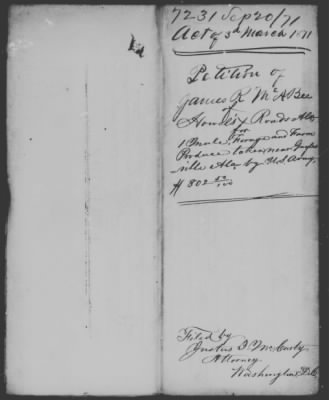 7231 Sep 20/71
Act of 3d March 1871
Petition of
James R McABee
of
Roads Ala
for
1 Mule, Forage and Farm
Produce taken near
ville Ala by U S Army,
$ 802 50/100
Filed by
McCarty
Attorney
Washington D.C.